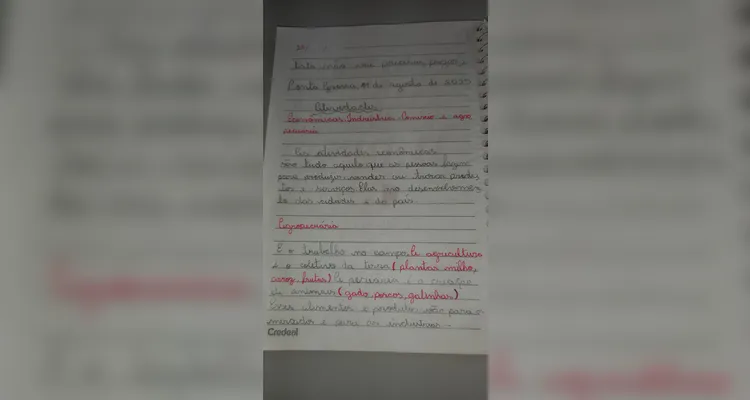 Ponta Grossa, 01 de agosto de 2025
Atividades
Econômicas Indústria Comércio e agro
pecuária
As atividades econômicas
são tudo aquilo que as pessoas fazem
para produzir vender ou trocar produ
tos e serviços. Elas no desenvolvimen
to das cidades e do país
Agropecuária
É o trabalho no campo. A agricultura
é o cultivo da terra (plantar milho,
arroz, frutas) A pecuária é a criação
de animais (gado, porcos, galinhas)
alimentos e produtos vão para o
mercados e para as indústrias.
Credeal